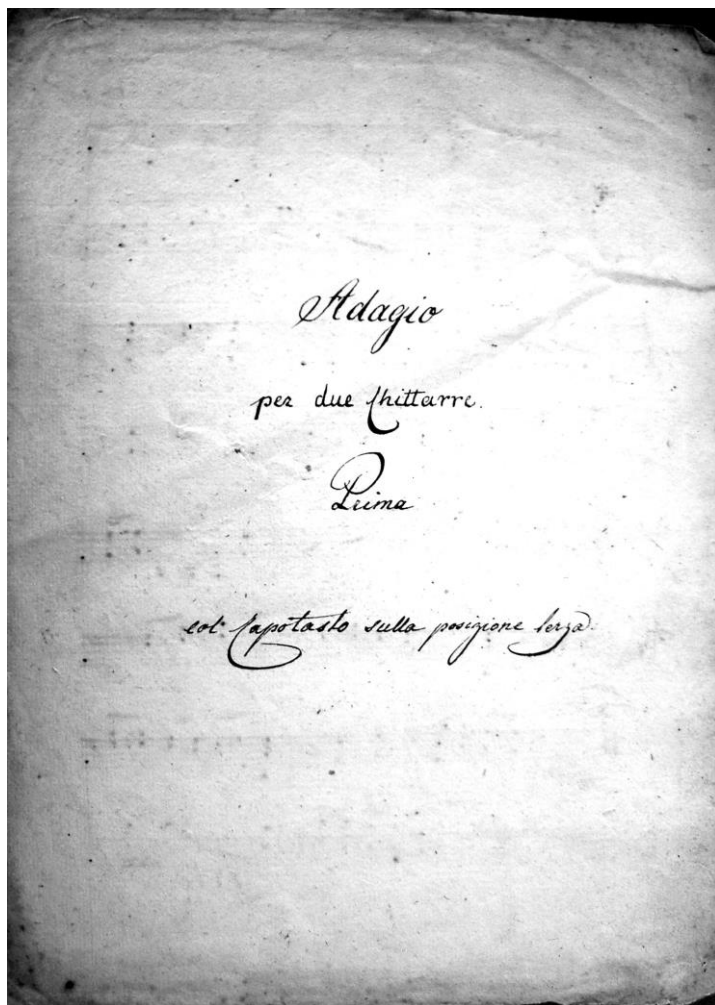 Adagio
per due Chittarre.
Prima
col Capotasto sulla posizione terza.